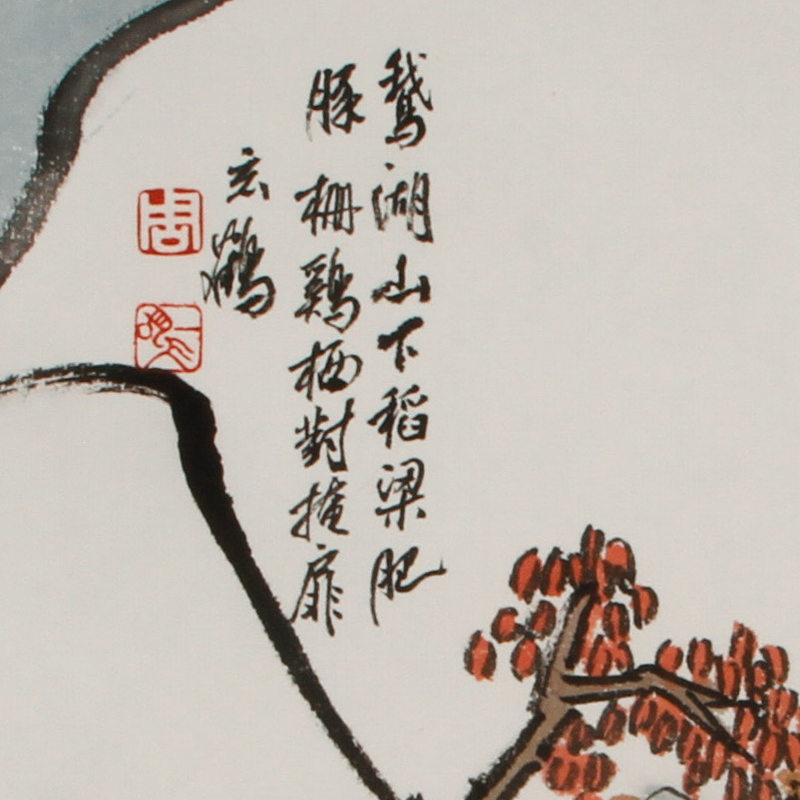 鵞湖山下稻梁肥
豚柵鷄栖對掩扉
玄鶴
周